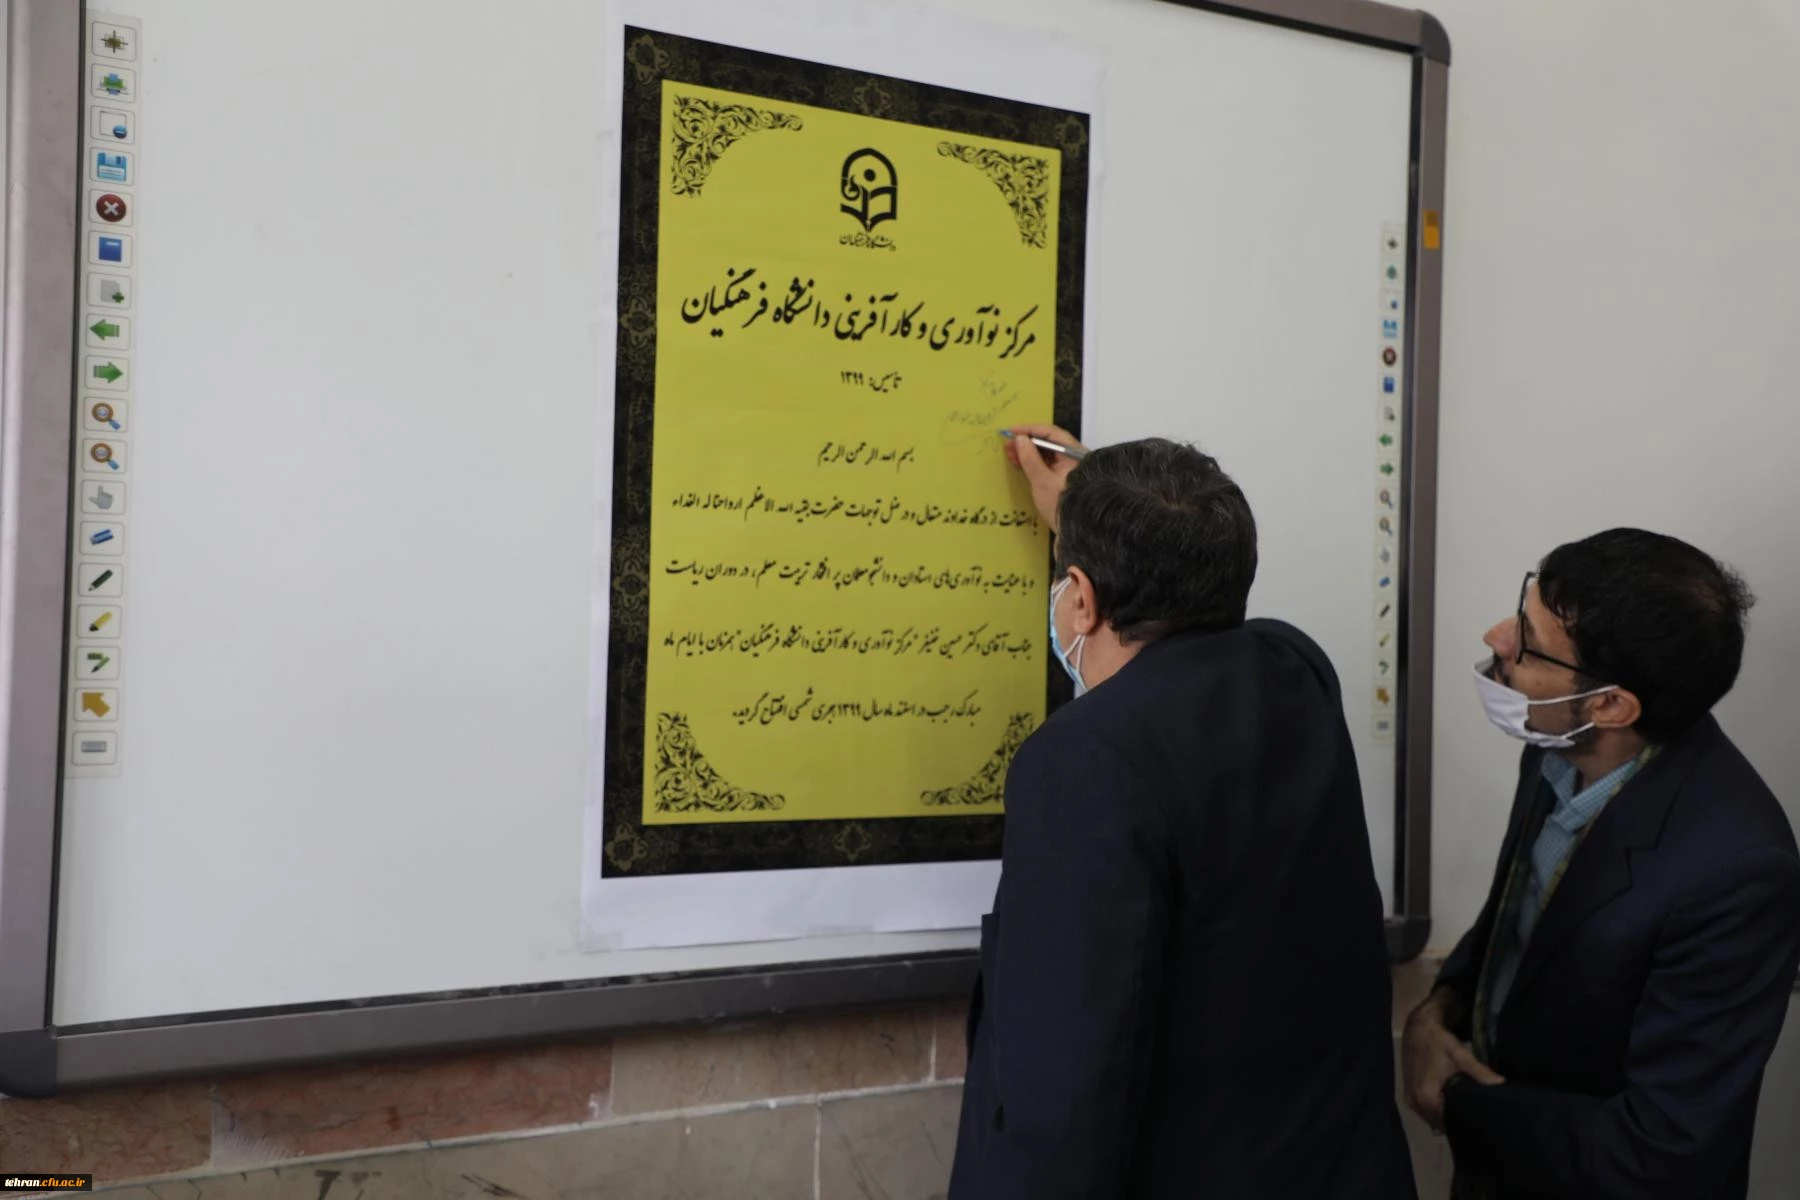 دانشگاه فرهنگیان
مرکز نوآوری و کارآفرینی دانشگاه فرهنگیان
تأسیس: ۱۳۹۹
بسم الله الرحمن الرحیم
با استعانت از درگاه خداوند متعال و در ظل توجهات حضرت بقیه الله الاعظم ارواحنا له الفداء
و با عنایت به نوآوری‌های استادان و دانشجومعلمان پر افتخار تربیت معلم، در دوران ریاست
جناب آقای دکتر حسین خنیفر "مرکز نوآوری و کارآفرینی دانشگاه فرهنگیان" همزمان با ایام ماه
مبارک رجب در اسفند ماه سال ۱۳۹۹ هجری شمسی افتتاح گردید.
tehran.cfu.ac.ir